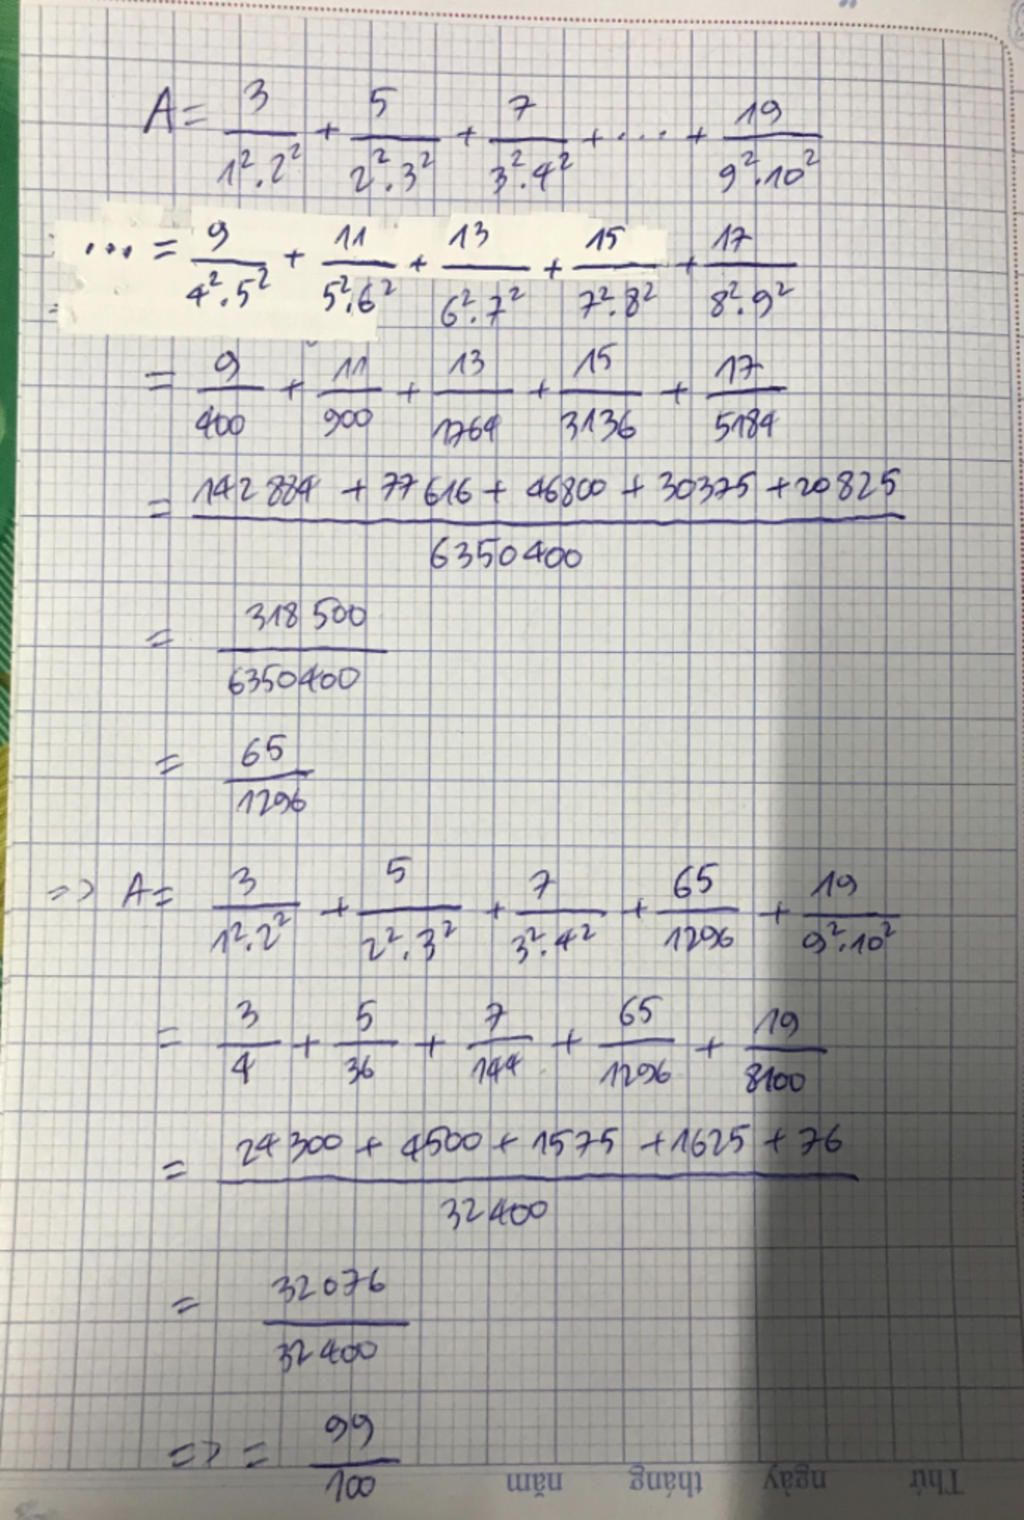 A = 3/(1².2²) + 5/(2².3²) + 7/(3².4²) + .... + 19/(9².10²)
... = 9/(4².5²) + 11/(5².6²) + 13/(6².7²) + 15/(7².8²) + 17/(8².9²)
= 9/400 + 11/900 + 13/1764 + 15/3136 + 17/5184
= (142884 + 77616 + 46800 + 30375 + 20825)/6350400
= 318500/6350400
= 65/1296
=> A = 3/(1².2²) + 5/(2².3²) + 7/(3².4²) + 65/1296 + 19/(9².10²)
= 3/4 + 5/36 + 7/144 + 65/1296 + 19/8100
= (24300 + 4500 + 1575 + 1625 + 76)/32400
= 32076/32400
=> = 99/100
Thứ ngày tháng năm